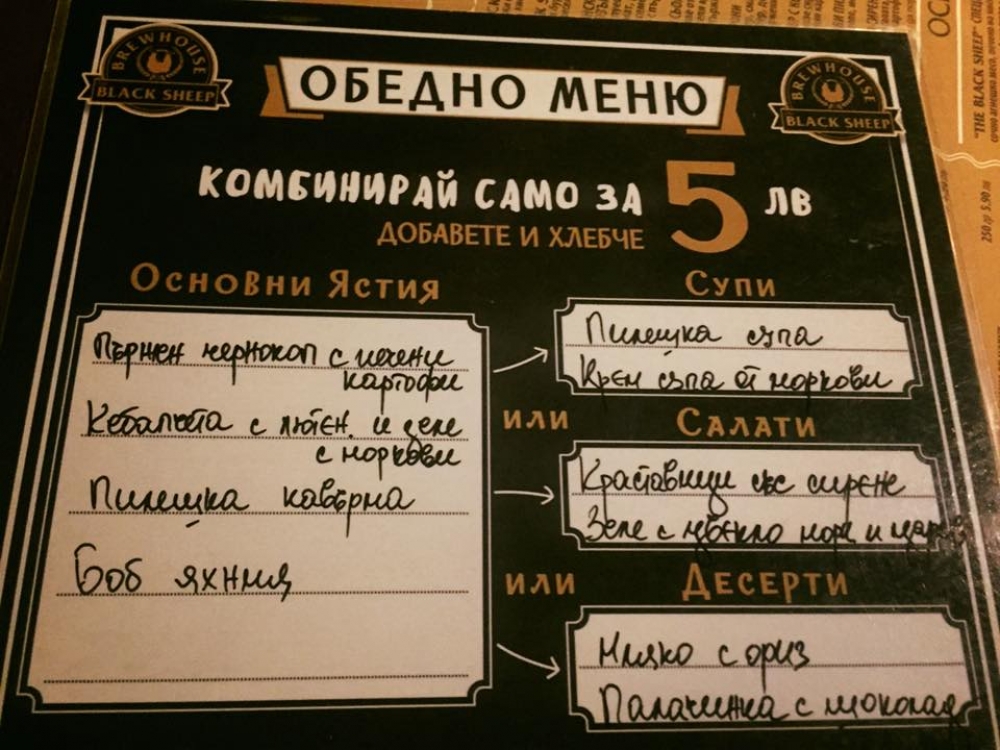 BREWHOUSE
BLACK SHEEP
ОБЕДНО МЕНЮ
BREWHOUSE
BLACK SHEEP
КОМБИНИРАЙ САМО ЗА 5 ЛВ
ДОБАВЕТЕ И ХЛЕБЧЕ
ОСНОВНИ ЯСТИЯ
Пържен чернокоп с печени
картофи
Кебапчета с лютен. и зеле
с моркови
Пилешка кавърма
Боб яхния
СУПИ
Пилешка супа
Крем супа от моркови
ИЛИ
САЛАТИ
Краставици със сирене
Зеле с цвекло морк и
ИЛИ
ДЕСЕРТИ
Мляко с ориз
Палачинка с шоколад
"THE BLACK SHEEP"
250 гр 5.90 лв